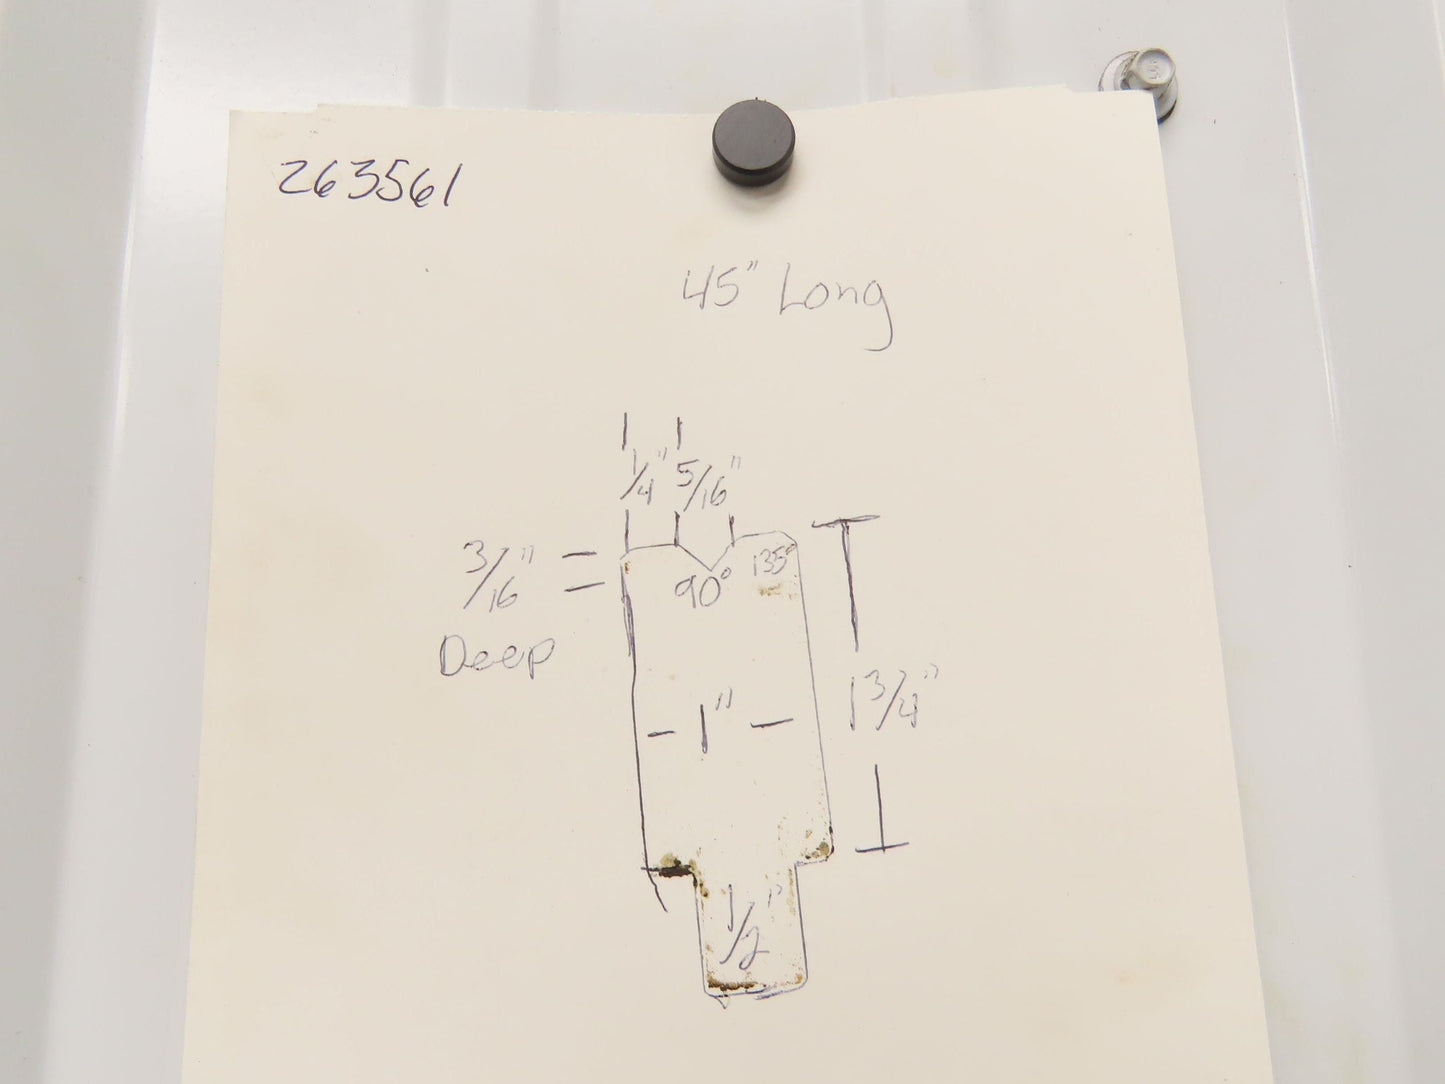 263561
45" Long
1/4" 5/16"
3/16"
Deep
90° 135°
1"
1 3/4"
1/2"